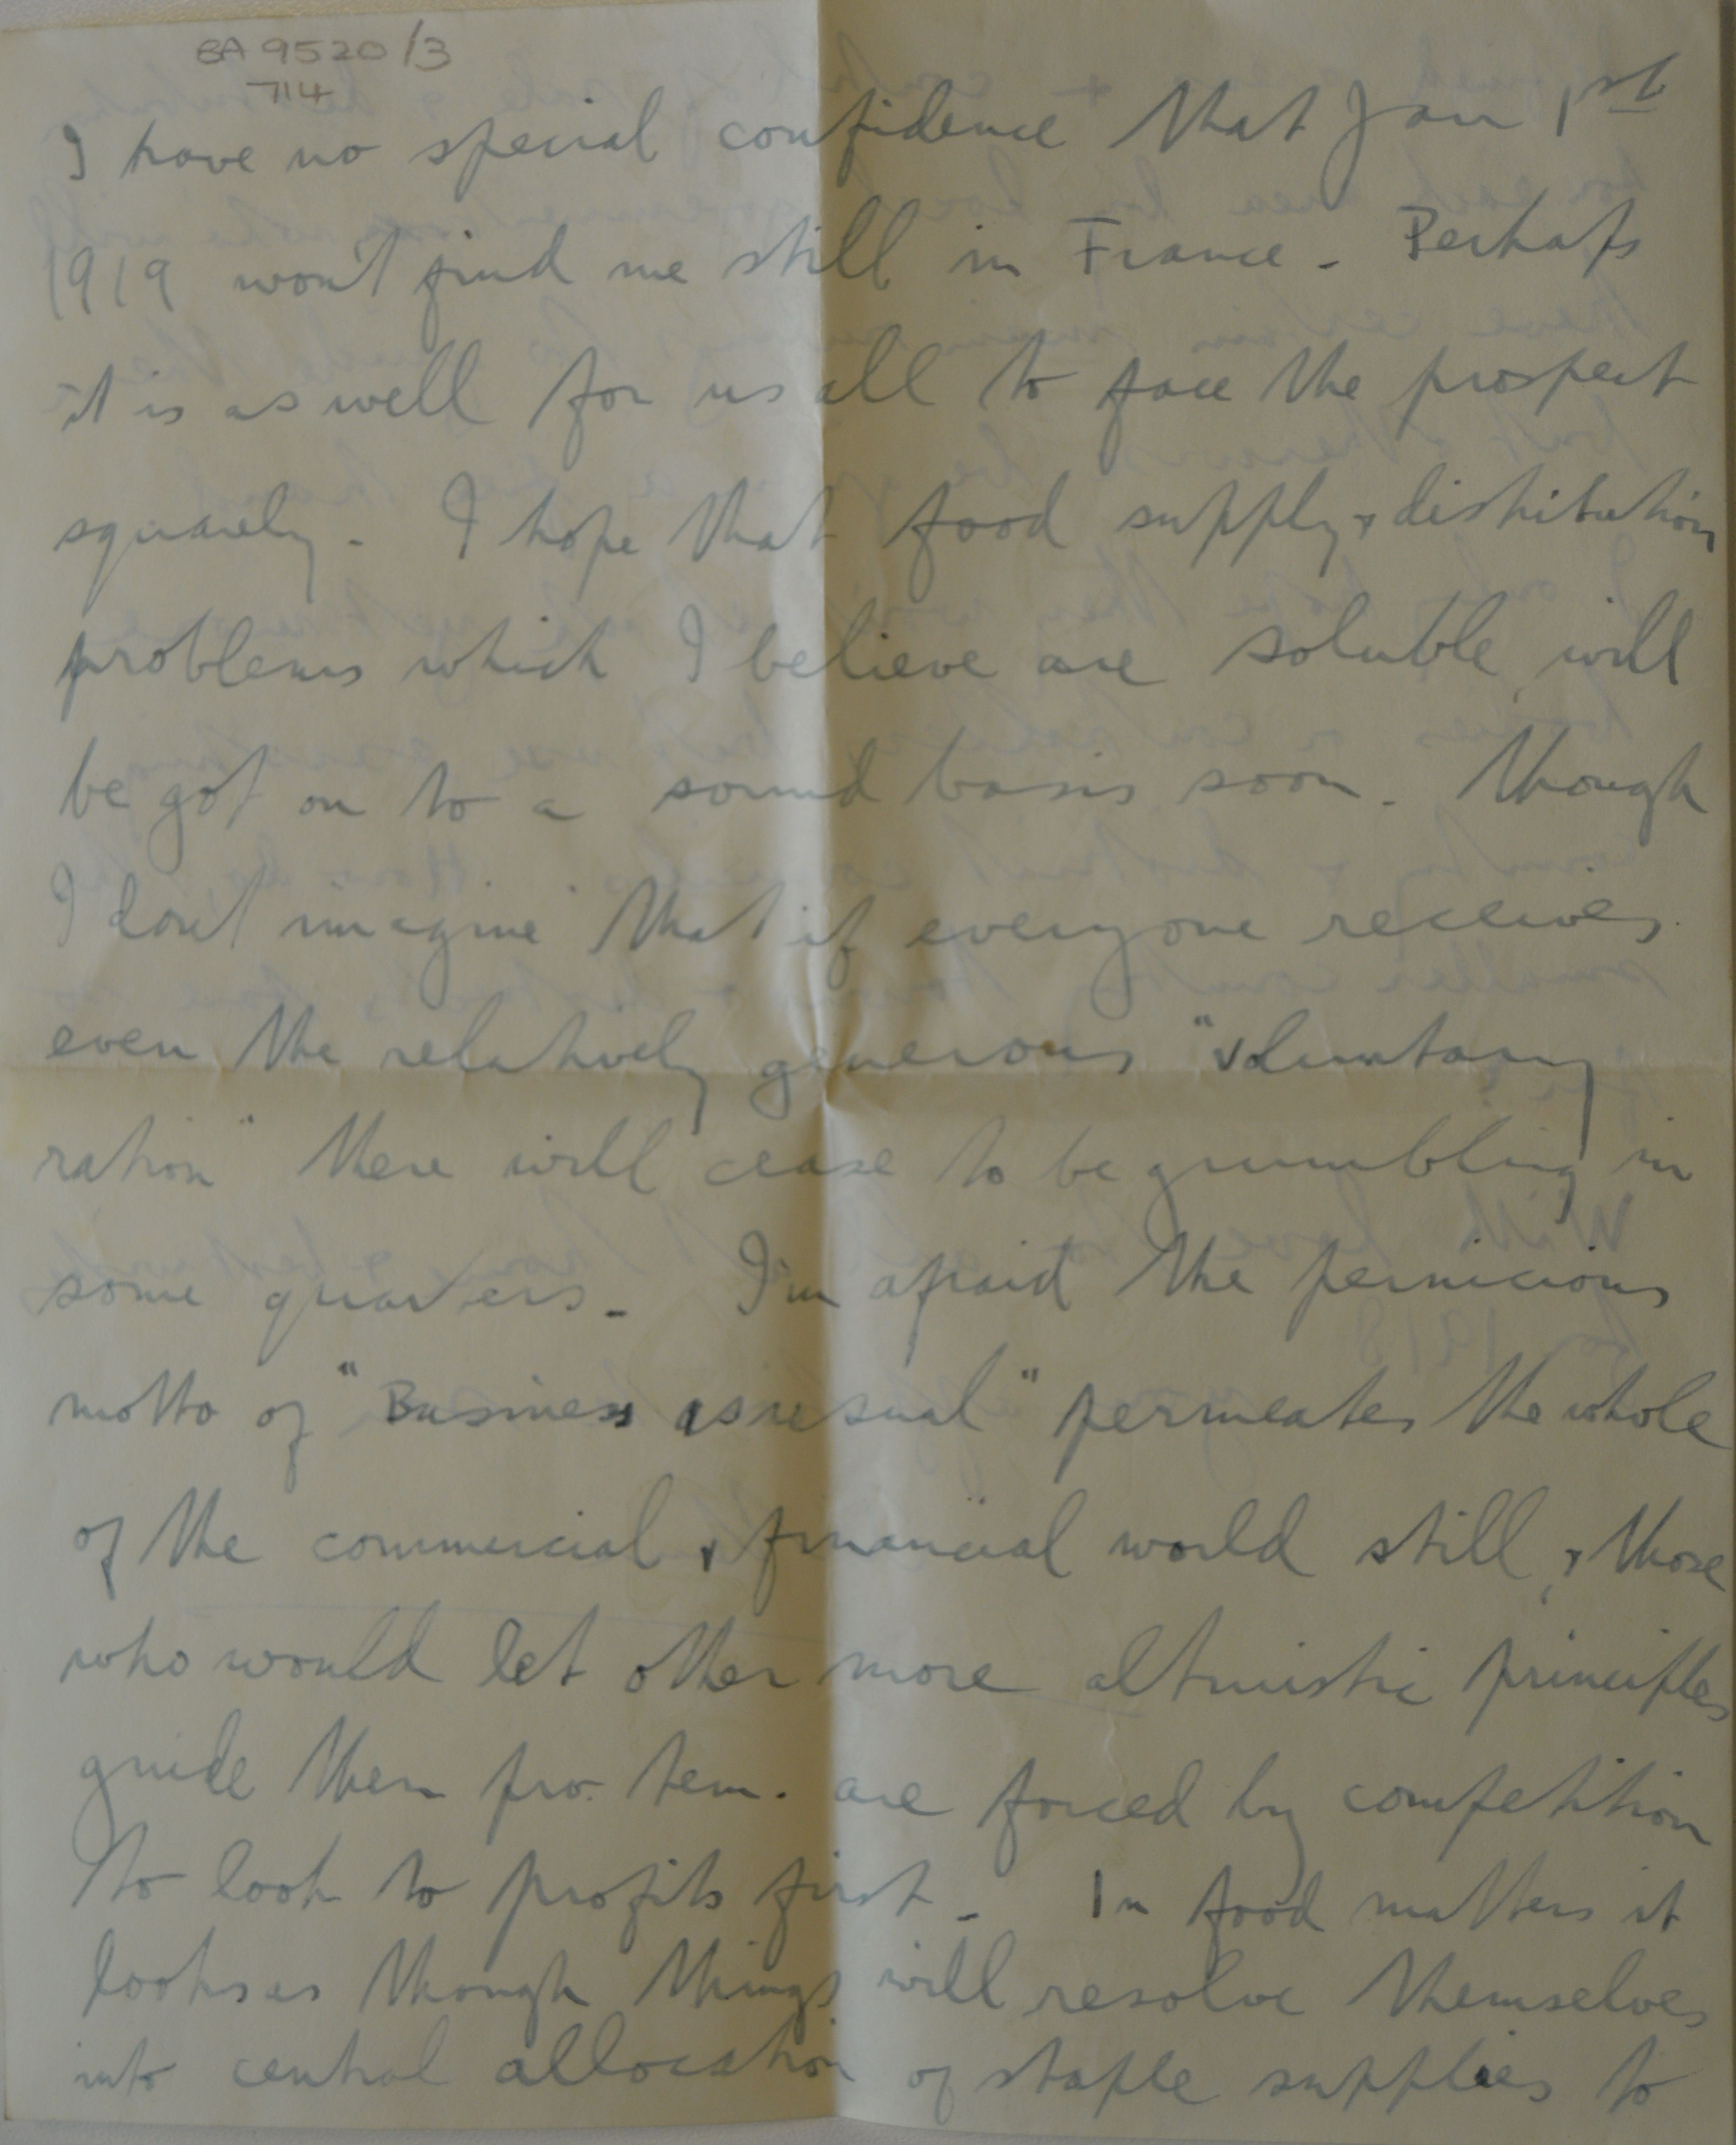 BA 9520/3
714
I have no special confidence that Jan 1st
1919 won't find me still in France - Perhaps
it is as well for us all to face the prospect
squarely. I hope that food supply & distribution
problems which I believe are soluble, will
be got on to a sound basis soon. Though
I don't imagine that if everyone receives
even the relatively generous "voluntary
ration" there will cease to be grumbling in
some quarters - I'm afraid the pernicious
motto of "Business as usual" permeates the whole
of the commercial & financial world still, & those
who would let other more altruistic principles
guide them pro. tem. are forced by competition
to look to profits first - In food matters it
looks as though things will resolve themselves
into central allocation of staple supplies to